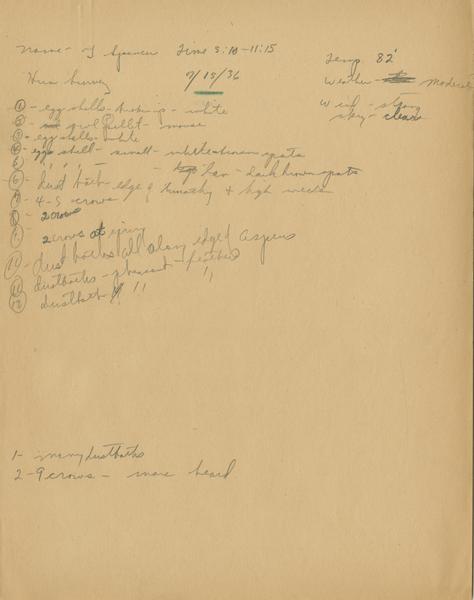 Name - J Spencer Time 8:10-11:15
Temp. 82°
Weather - Moderate
7/15/36
Wind - strong
sky - clear
① - egg shells - broken up - white
② - owl pellet - mouse
③ - egg shells - white
④ - egg shell - small - white brown spots
⑤ " " " - tan - dark brown spots
⑥ - dust bath edge of timothy & high weeds
4-5 crows
2 crows
2 crows at spring
dust baths all along edge of aspens
⑪ dustbaths - pheasant - feathers
⑫ dustbath " "
1- many dustbaths
2 - 9 crows - more heard